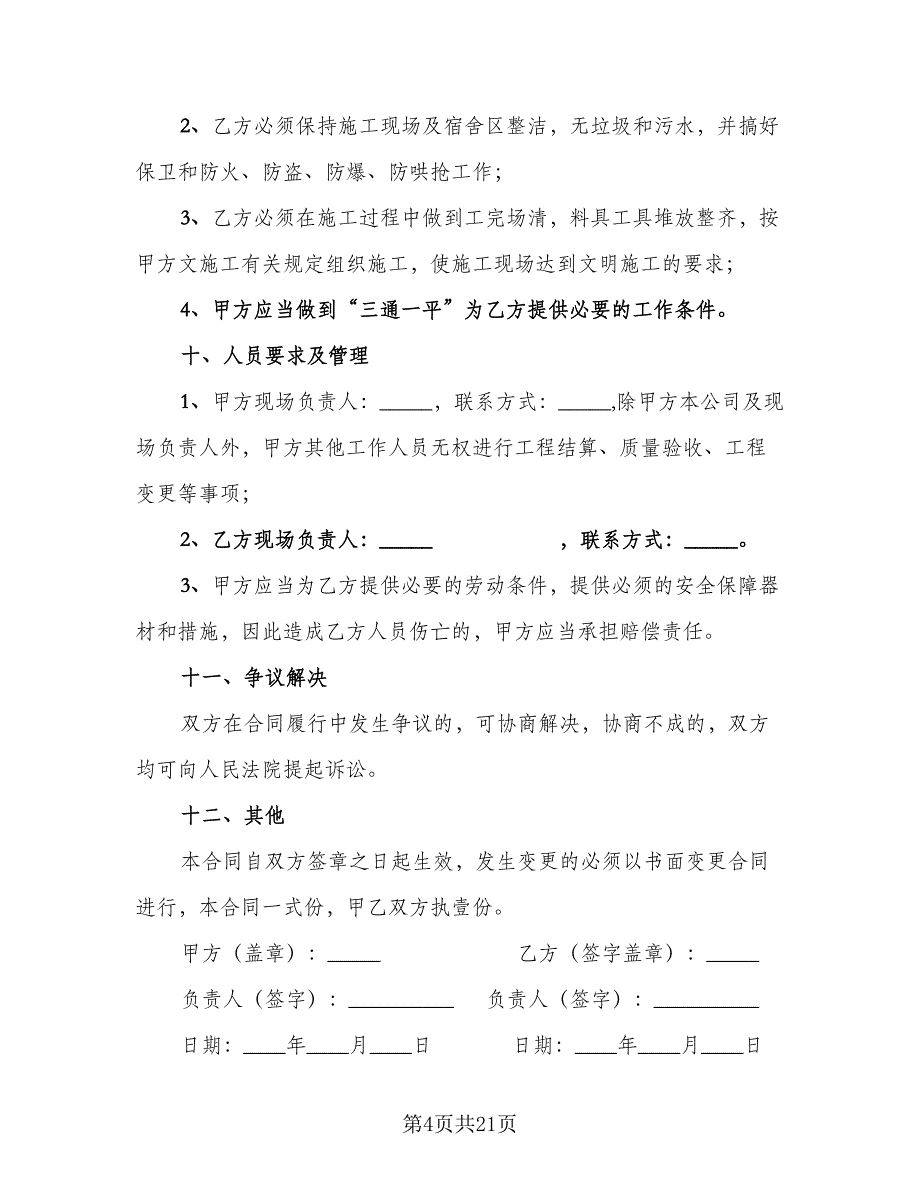 2、乙方必须保持施工现场及宿舍区整洁，无垃圾和污水，并搞好
保卫和防火、防盗、防爆、防哄抢工作；
3、乙方必须在施工过程中做到工完场清，料具工具堆放整齐，按
甲方文施工有关规定组织施工，使施工现场达到文明施工的要求；
4、甲方应当做到“三通一平”为乙方提供必要的工作条件。
十、人员要求及管理
1、甲方现场负责人：_____，联系方式：_____,除甲方本公司及现
场负责人外，甲方其他工作人员无权进行工程结算、质量验收、工程
变更等事项；
2、乙方现场负责人：_____ ，联系方式：_____。
3、甲方应当为乙方提供必要的劳动条件，提供必须的安全保障器
材和措施，因此造成乙方人员伤亡的，甲方应当承担赔偿责任。
十一、争议解决
双方在合同履行中发生争议的，可协商解决，协商不成的，双方
均可向人民法院提起诉讼。
十二、其他
本合同自双方签章之日起生效，发生变更的必须以书面变更合同
进行，本合同一式份，甲乙双方执壹份。
甲方（盖章）：_____ 乙方（签字盖章）：_____
负责人（签字）：__________ 负责人（签字）：__________
日期：____年____月____日 日期：____年____月____日
第4页共21页